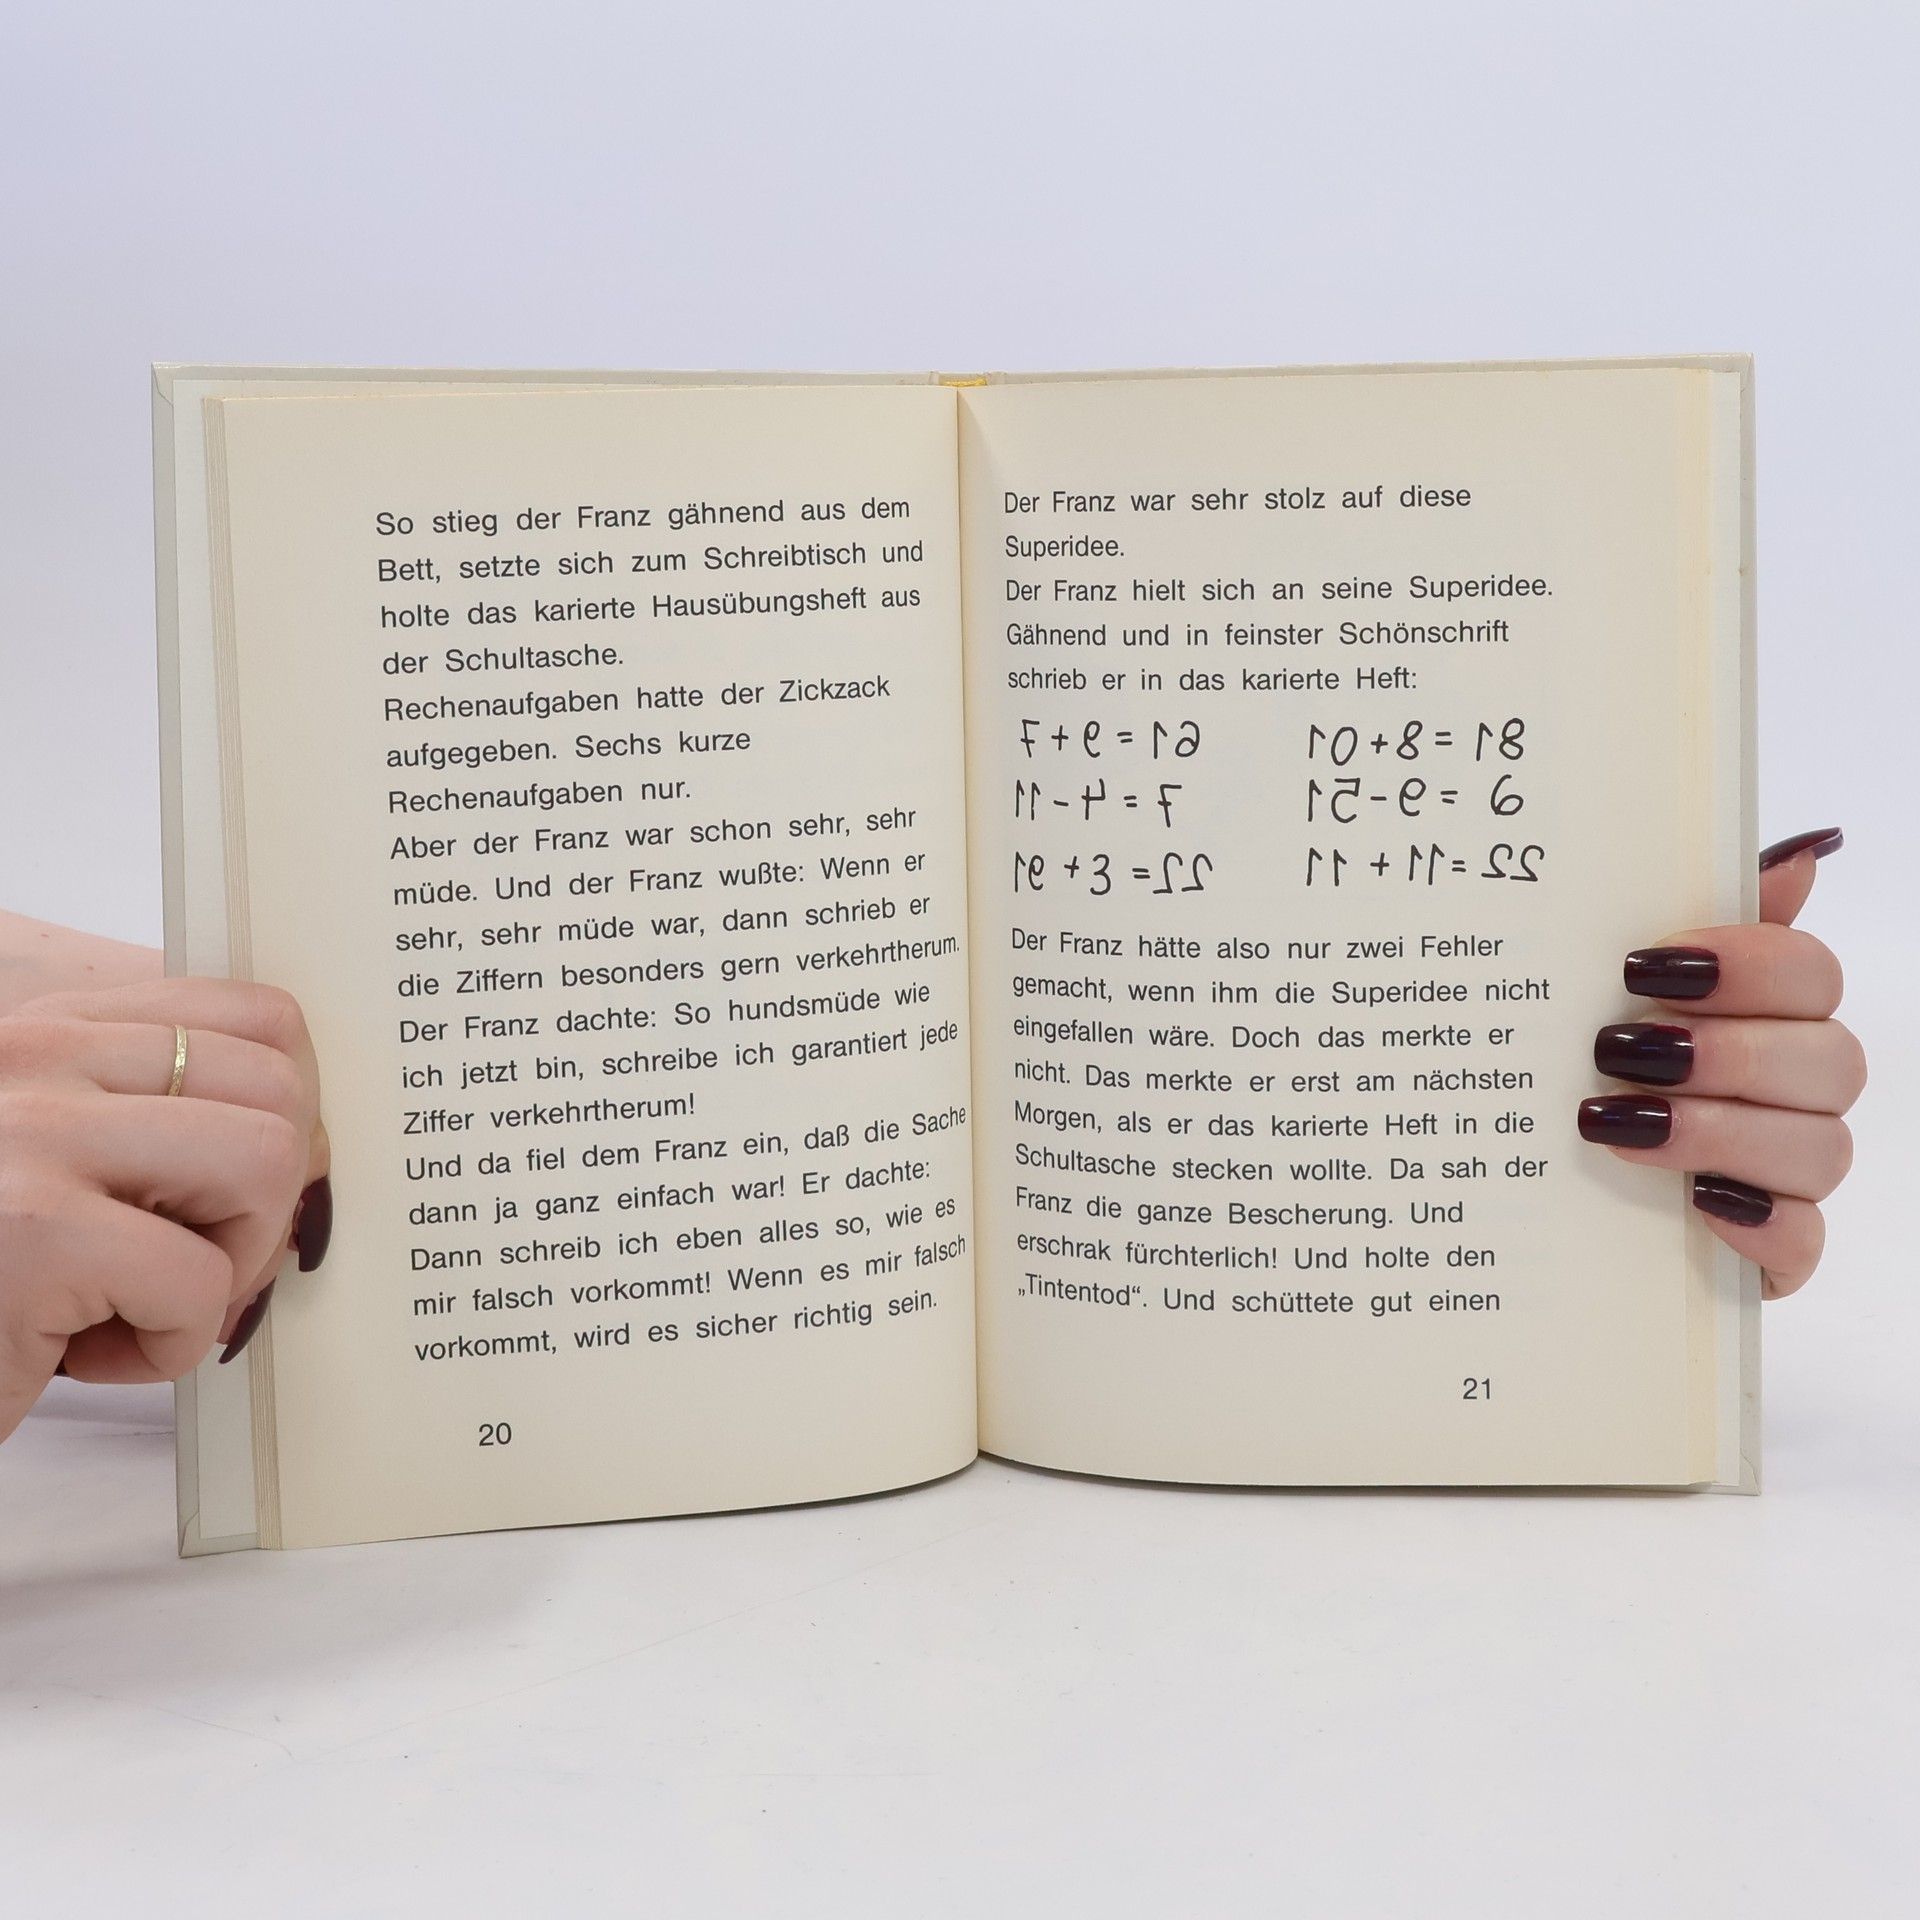 So stieg der Franz gähnend aus dem
Bett, setzte sich zum Schreibtisch und
holte das karierte Hausübungsheft aus
der Schultasche.
Rechenaufgaben hatte der Zickzack
aufgegeben. Sechs kurze
Rechenaufgaben nur.
Aber der Franz war schon sehr, sehr
müde. Und der Franz wußte: Wenn er
sehr, sehr müde war, dann schrieb er
die Ziffern besonders gern verkehrtherum.
Der Franz dachte: So hundsmüde wie
ich jetzt bin, schreibe ich garantiert jede
Ziffer verkehrtherum!
Und da fiel dem Franz ein, daß die Sache
dann ja ganz einfach war! Er dachte:
Dann schreib ich eben alles so, wie es
mir falsch vorkommt! Wenn es mir falsch
vorkommt, wird es sicher richtig sein.
20
Der Franz war sehr stolz auf diese
Superidee.
Der Franz hielt sich an seine Superidee.
Gähnend und in feinster Schönschrift
schrieb er in das karierte Heft:
7+9=16 10+8=18
11-4=7 15-9=6
19+3=22 11+11=22
Der Franz hätte also nur zwei Fehler
gemacht, wenn ihm die Superidee nicht
eingefallen wäre. Doch das merkte er
nicht. Das merkte er erst am nächsten
Morgen, als er das karierte Heft in die
Schultasche stecken wollte. Da sah der
Franz die ganze Bescherung. Und
erschrak fürchterlich! Und holte den
„Tintentod“. Und schüttete gut einen
21